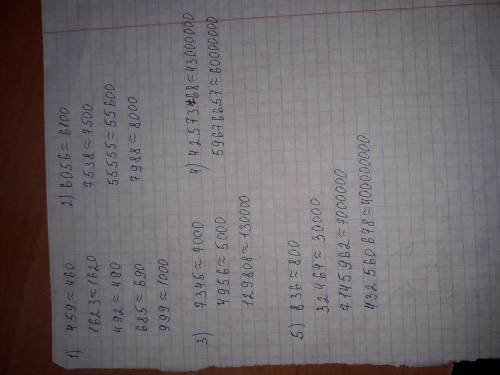 1) 459≈460
1623≈1620
492≈490
685≈690
999≈1000
2) 6056≈6100
7538≈7500
55555≈55600
7988≈8000
3) 7345≈7000
4956≈5000
129808≈130000
4) 42573468≈43000000
59676657≈60000000
5) 836≈800
32464≈30000
7145962≈7000000
432560678≈400000000